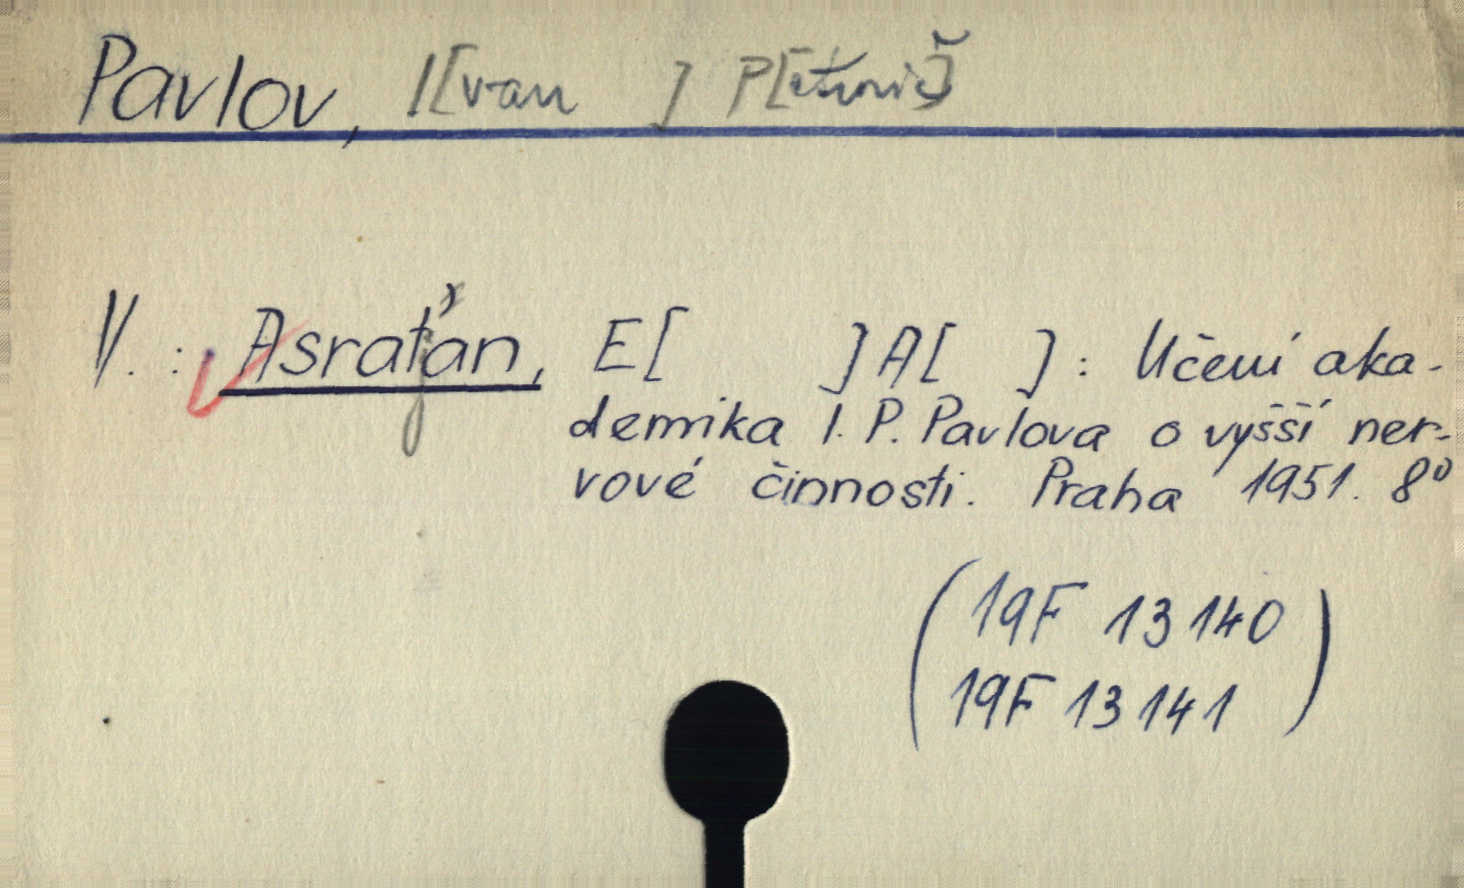 Pavlov, I[van ] P[etrovič]
V. : Asraťjan, E[ ] A[ ] : Učení aka-
demika I. P. Pavlova o vyšší ner-
vové činnosti. Praha 1951. 8°
(19F 13140
19F 13141)